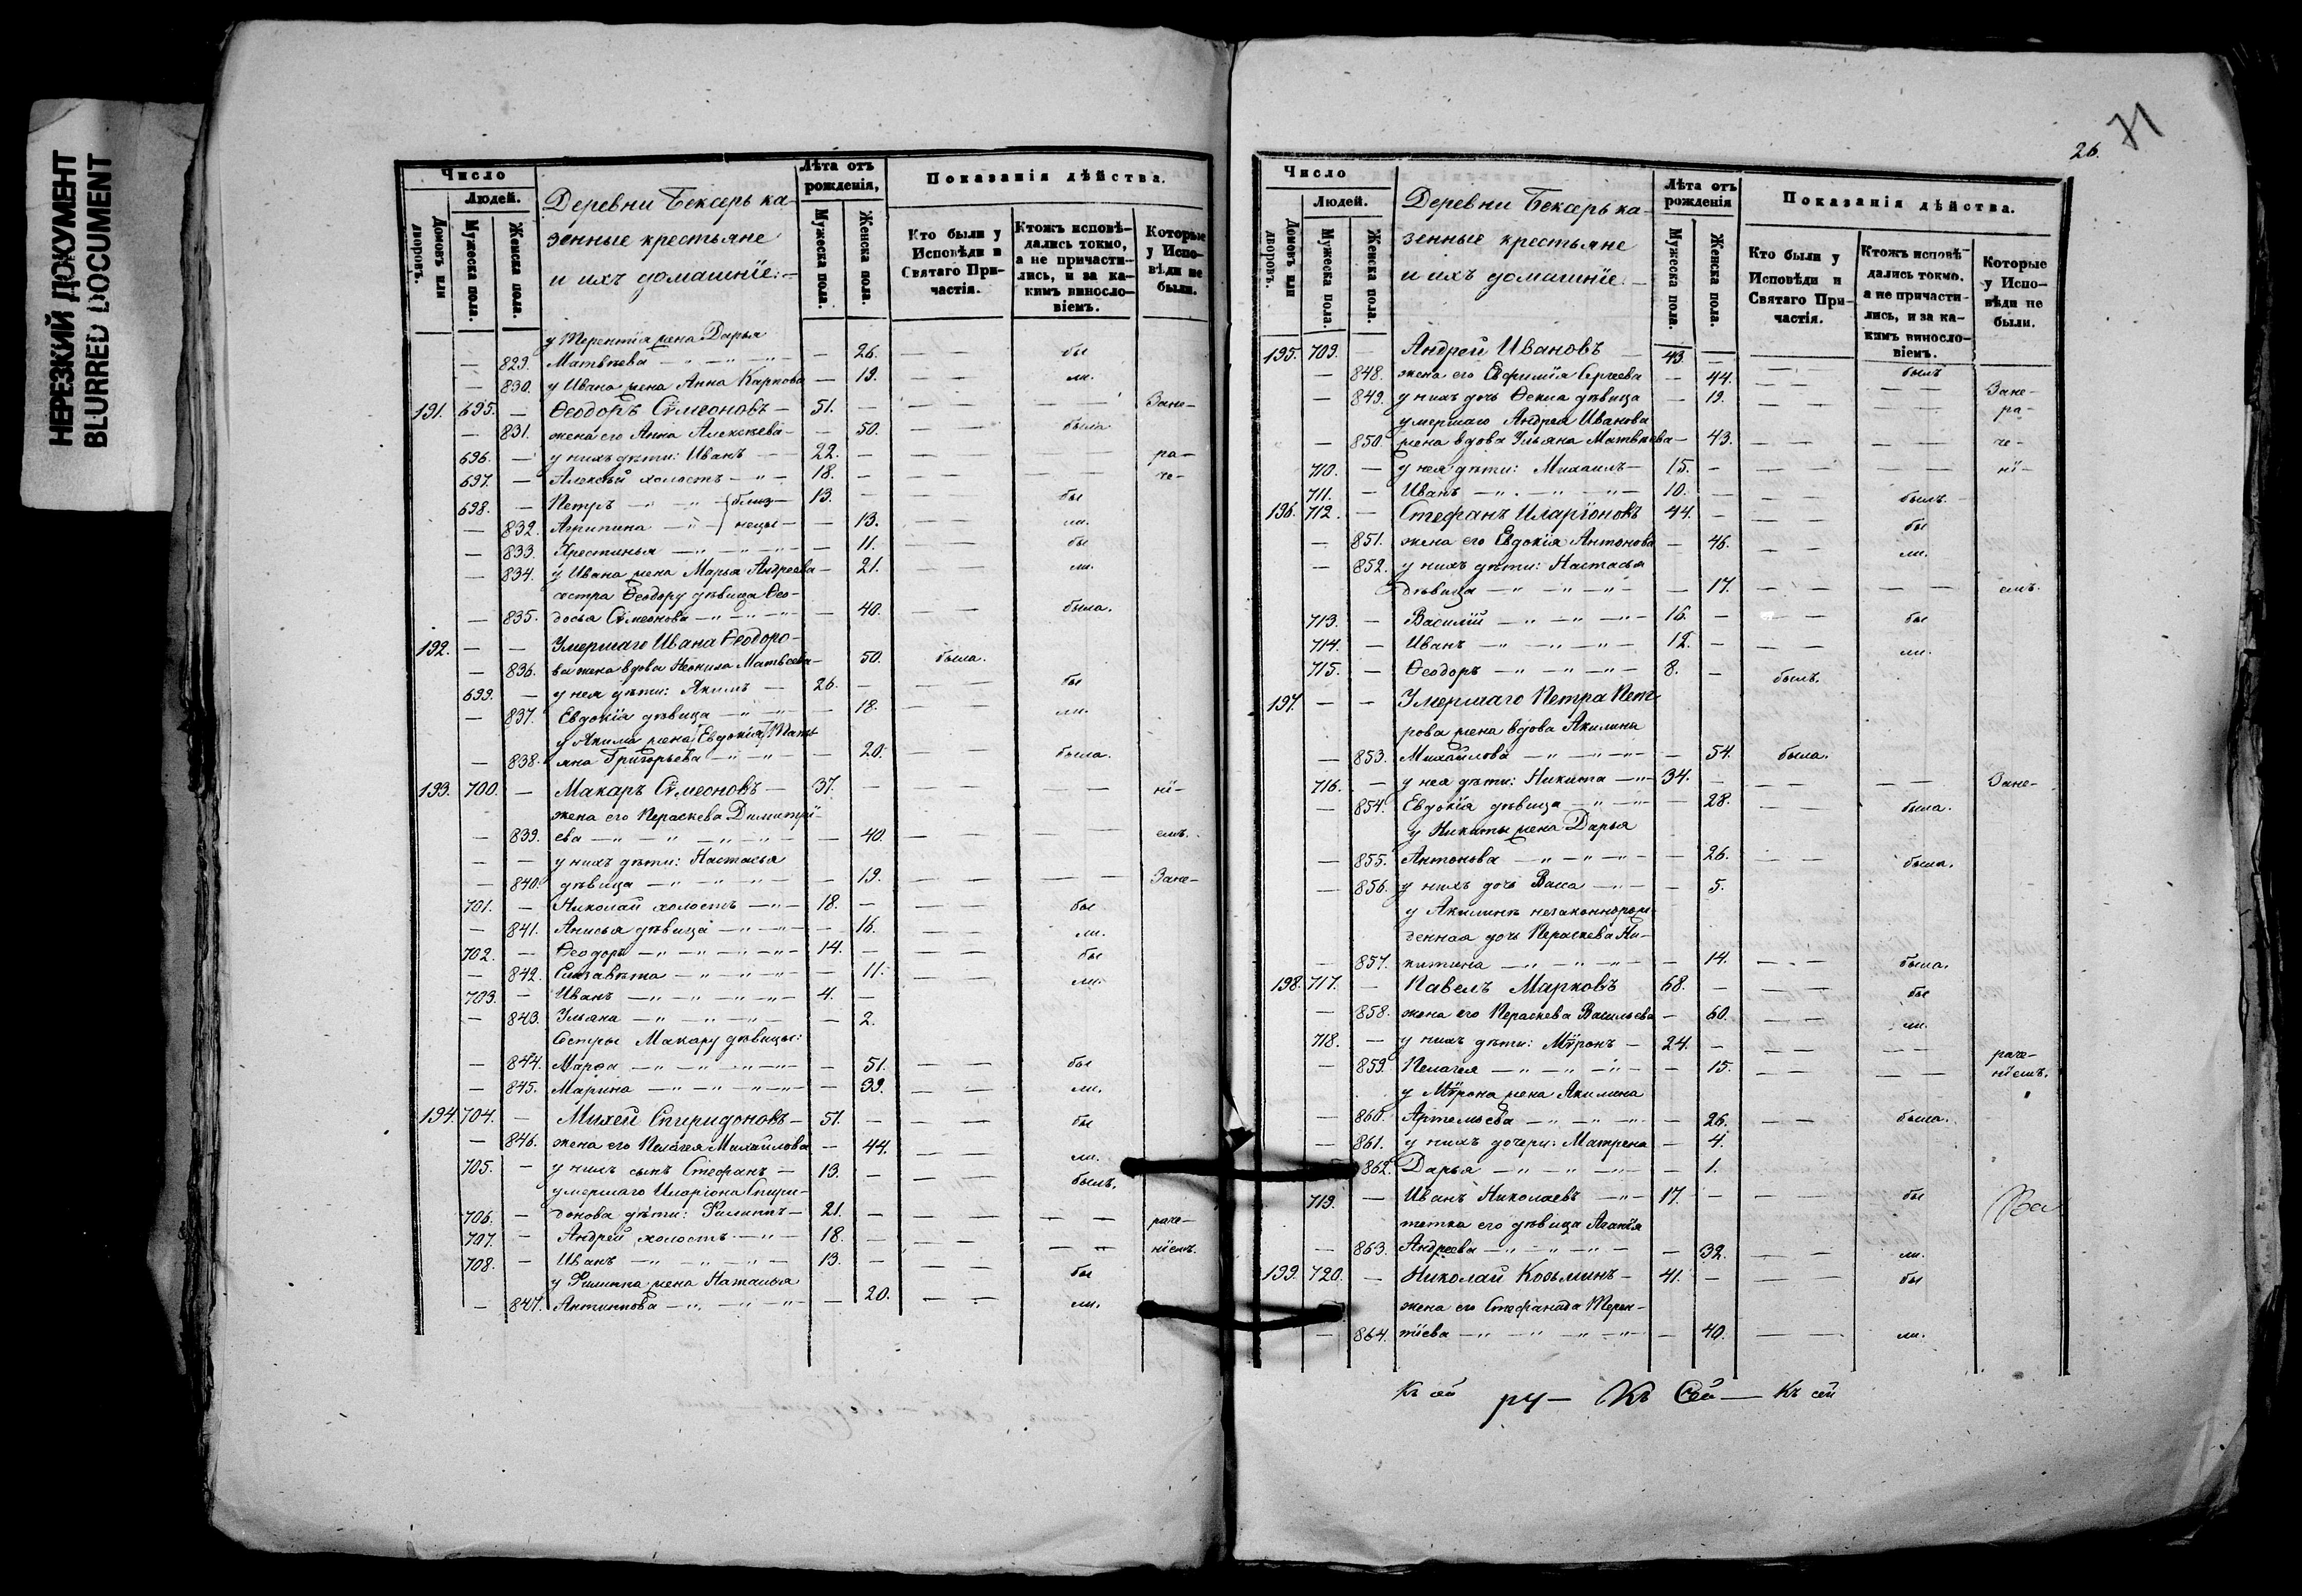 НЕРЕЗКИЙ ДОКУМЕНТ
BLURRED DOCUMENT
Число
Людей.
Домовъ или дворовъ.
Мужеска пола.
Женска пола.
Деревни Бексерь ка-
зенные крестьяне
и ихъ домашніе:
Лѣта отъ рожденія,
Мужеска пола.
Женска пола.
Показанія дѣйства.
Кто были у Исповѣди и Святаго При-частія.
Ктожъ исповѣ-дались токмо, а не причасти-лись, и за ка-кимъ винносло-віемъ.
Которые у Испо-вѣди не были.
у Терентія жена Дарья
— 829. Матвѣева — 26. — — бы
— 830. у Ивана жена Анна Карпова — 19. — — ли.
191. 695. — Ѳеодоръ Сѵмеоновъ — 51. — — — — — Зане-
— 831. жена его Анна Алексѣева — 50. — — была
696. — у нихъ дѣти: Иванъ — 22. — — — — — ра-
697. — Алексѣй холостъ — 18. — — — — — че-
698. — Петръ близ- 13. — — — бы
— 832. Агрипина нецы — 13. — — ли.
— 833. Крестинья — 11. — — бы
— 834. у Ивана жена Марья Андреева — 21. — — ли.
сестра Ѳеодору дѣвица Ѳео-
— 835. досья Сѵмеонова — 40. — — была.
192. — — Умершаго Ивана Ѳеодоро-
— 836. ва жена вдова Неонила Матвѣева — 50. была.
699. — у нея дѣти: Акимъ — 26. — — — бы
— 837. Евдокія дѣвица — 18. — — ли.
у Акима жена [Евдокія] Тать
— 838. яна Григорьева — 20. — — была.
193. 700. — Макаръ Сѵмеоновъ — 37. — — — — ні-
жена его Параскева Димитрі-
— 839. ева — 40. — — — — емъ.
— — у нихъ дѣти: Настасья
— 840. дѣвица — 19. — — — — Зане-
701. — Николай холостъ — 18. — — — бы
— 841. Анисья дѣвица — 16. — — ли.
702. — Ѳеодоръ — 14. — — — бы
— 842. Елисавета — 11. — — ли.
703. — Иванъ — 4. —
— 843. Ульяна — 2.
Сестры Макару дѣвицы:
— 844. Марѳа — 51. — — бы
— 845. Марина — 39. — — ли.
194. 704. — Михей Спиридоновъ — 51. — — — бы
— 846. жена его Пелагея Михайлова — 44. — — ли.
705. — у нихъ сынъ Стефанъ — 13. — — — былъ.
умершаго Иларіона Спири-
706. — донова дѣти: Филиппъ — 21. — — — — — раче-
707. — Андрей холостъ — 18. — — — — — ніемъ.
708. — Иванъ — 13. — — — бы
у Филиппа жена Наталья
— 847. Антипова — 20. — — ли.
26. 71
Число
Людей.
Домовъ или дворовъ.
Мужеска пола.
Женска пола.
Деревни Бексерь ка-
зенные крестьяне
и ихъ домашніе:
Лѣта отъ рожденія
Мужеска пола.
Женска пола.
Показанія дѣйства.
Кто были у Исповѣди и Святаго При-частія.
Ктожъ исповѣ-дались токмо, а не причасти-лись, и за ка-кимъ винносло-віемъ.
Которые у Испо-вѣди не были.
195. 709. — Андрей Ивановъ — 43. — — — былъ
— 848. жена его Евфимія Сергеева — 44. — — — — Зане-
— 849. у нихъ дочь Ѳекла дѣвица — 19. — — — — ра-
умершаго Андрея Иванова
— 850. жена вдова Ульяна Матвѣева — 43. — — — — че-
710. — у нея дѣти: Михаилъ — 15. — — — — — ні-
711. — Иванъ — 10. — — — былъ.
196. 712. — Стефанъ Иларіоновъ 44. — — — бы
— 851. жена его Евдокія Антонова — 46. — — ли.
— 852. у нихъ дѣти: Настасья
дѣвица — 17. — — — — емъ.
713. — Василій — 16. — — — бы
714. — Иванъ — 12. — — — ли.
715. — Ѳеодоръ — 8. — былъ.
197. — — Умершаго Петра Пет-
рова жена вдова Акилина
— 853. Михайлова — 54. была.
716. — у нея дѣти: Никита — 34. — — — — — Зане-
— 854. Евдокія дѣвица — 28. — — была.
у Никиты жена Дарья
— 855. Антонова — 26. — — была.
— 856. у нихъ дочь Васса — 5.
у Акилины незаконнорож-
денная дочь Параскева Ни-
— 857. китина — 14. — — была.
198. 717. — Павелъ Марковъ 68. — — — бы
— 858. жена его Параскева Васильева — 60. — — ли.
718. — у нихъ дѣти: Мѵронъ — 24. — — — — — раче-
— 859. Пелагея — 15. — — — — ніемъ.
у Мѵрона жена Акилина
— 860. Артемьева — 26. — — была.
— 861. у нихъ дочери: Матрена — 4.
862. Дарья — 1.
719. — Иванъ Николаевъ — 17. — — — бы
тетка его дѣвица Агапія
— 863. Андреева — 32. — — ли.
199. 720. — Николай Козьминъ — 41. — — — бы
жена его Стефанида Терен-
— 864. тіева — 40. — — ли.
Къ сей ру— Къ Сей — Къ сей